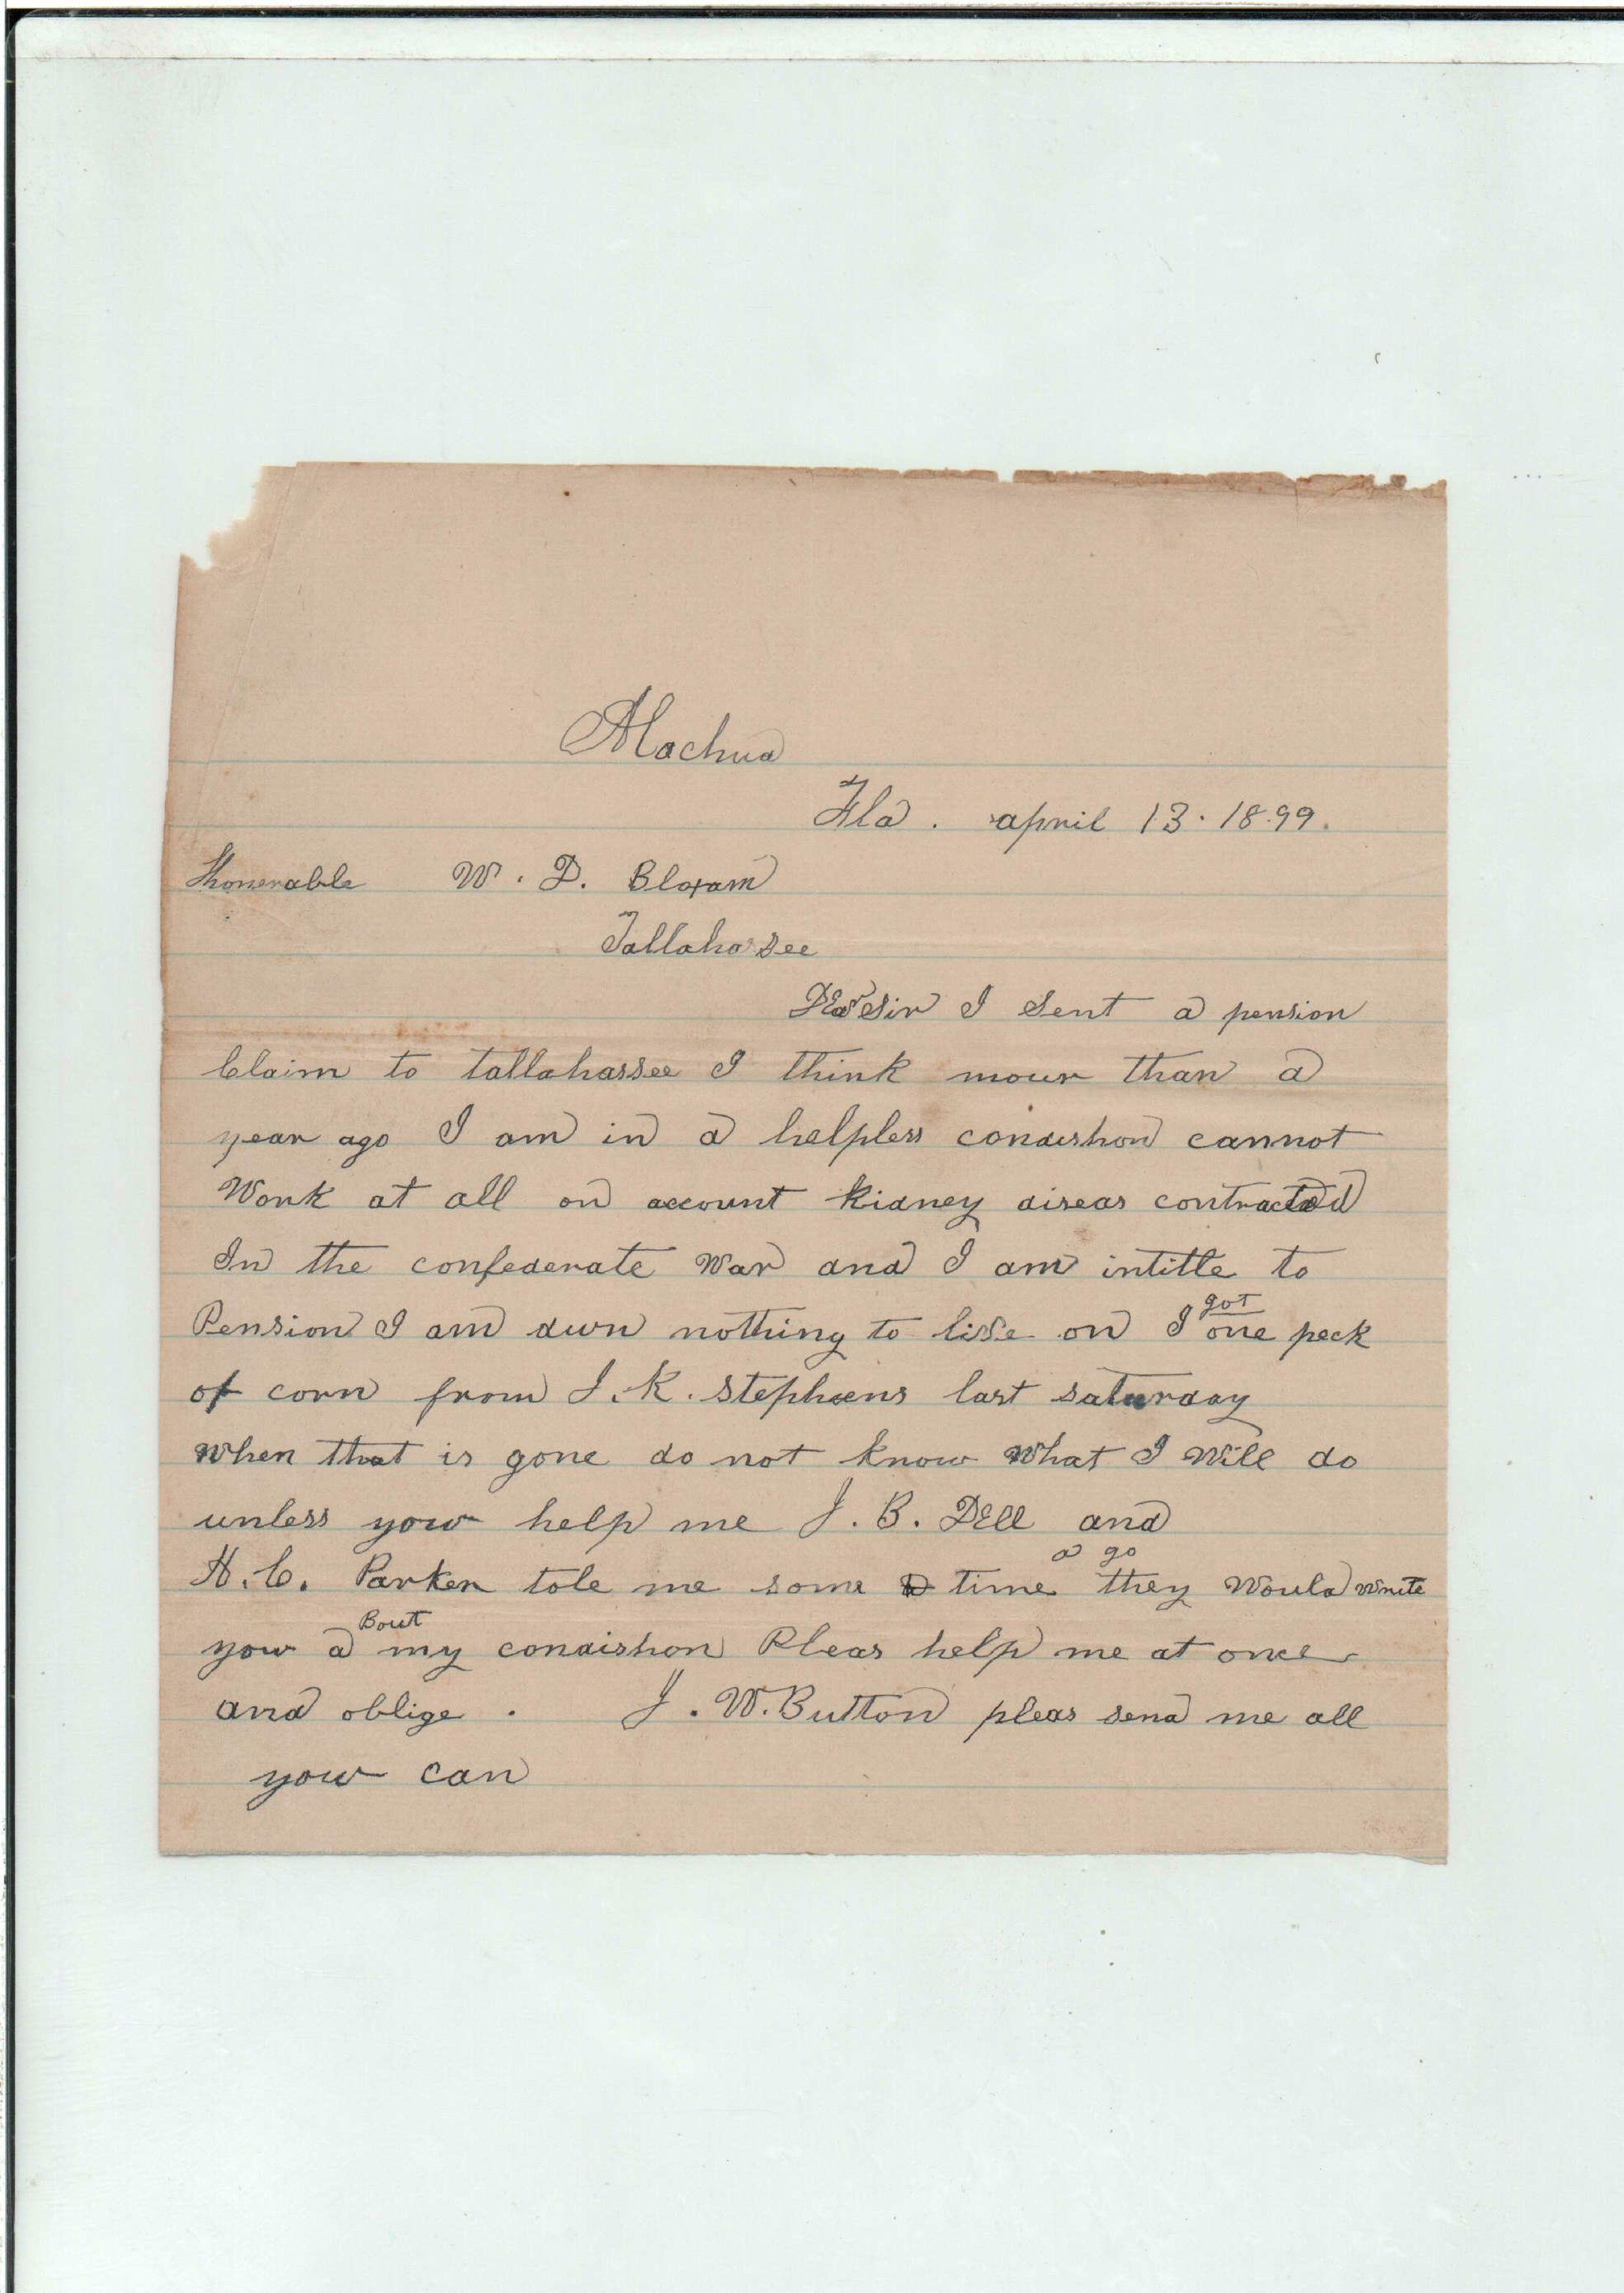 Alachua
Fla. april 13. 18.99.
Honerable W. D. Bloxam
Tallahassee
Dear Sir I Sent a pension
Claim to tallahassee I think mour than a
year ago I am in a helpless condishon cannot
Work at all on account kidney diseas contracted
In the confederate War and I am intitle to
Pension I am dun nothing to live on I got one peck
of corn from J. K. Stephens last saturday
when that is gone do not know What I Will do
unless yow help me J. B. DEll and
H. C. Parker tole me some time a go they Would write
yow a Bout my condishon Pleas help me at once
and oblige. J. W. Button pleas send me all
yow can